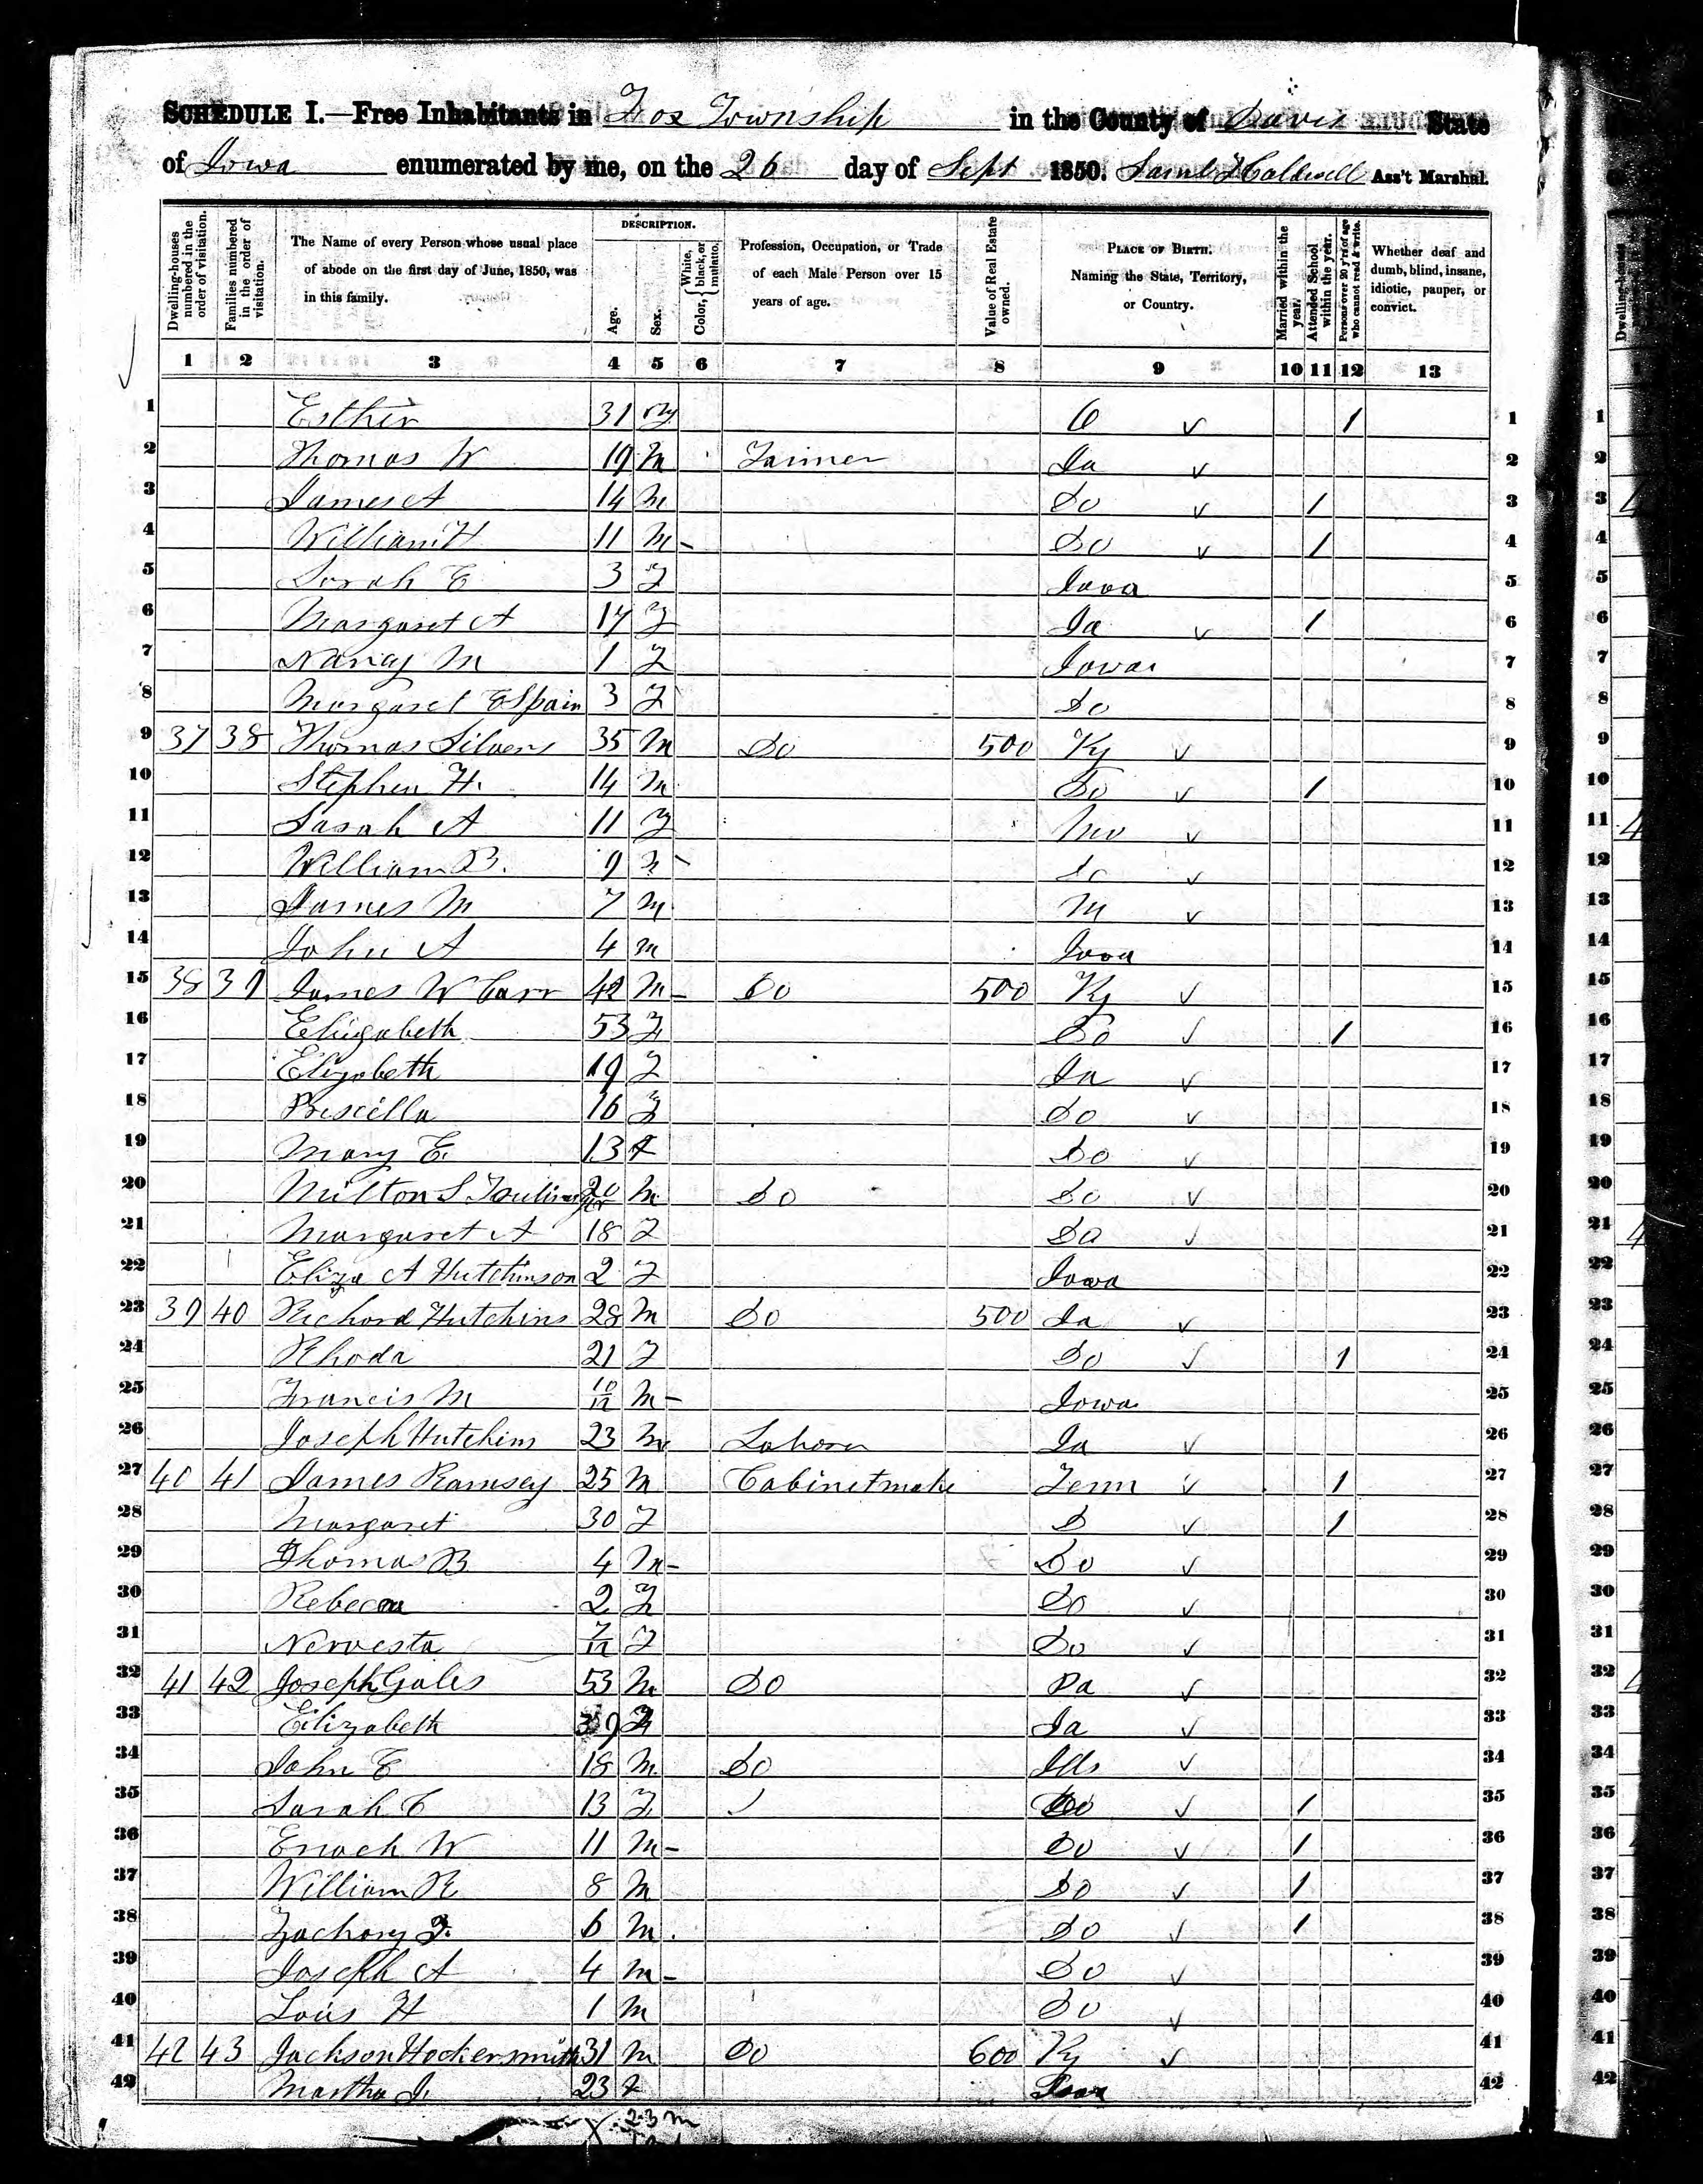 SCHEDULE I.—Free Inhabitants in Fox Township in the County of Davis State
of Iowa enumerated by me, on the 26 day of Sept 1850. Saml Caldwell Ass't Marshal.
Dwelling-houses numbered in the order of visitation.
Families numbered in the order of visitation.
The Name of every Person whose usual place of abode on the first day of June, 1850, was in this family.
DESCRIPTION.
Age.
Sex.
Color, White, black, or mulatto.
Profession, Occupation, or Trade of each Male Person over 15 years of age.
Value of Real Estate owned.
PLACE OF BIRTH. Naming the State, Territory, or Country.
Married within the year.
Attended School within the year.
Persons over 20 y'rs of age who cannot read & write.
Whether deaf and dumb, blind, insane, idiotic, pauper, or convict.
1 2 3 4 5 6 7 8 9 10 11 12 13
1 Esther 31 O 1 1
2 Thomas W 19 M Farmer Ia 2
3 James A 14 M Do 1 3
4 William H 11 M Do 1 4
5 Sarah E 3 F Iowa 5
6 Margaret A 17 F Ia 1 6
7 Nancy M 1 F Iowa 7
8 Margaret E Spain 3 F Do 8
9 37 38 Thomas Silvers 35 M Do 500 Ky 9
10 Stephen H. 14 M Do 1 10
11 Sarah A 11 F Mo 11
12 William B. 9 M Do 12
13 James M 7 M M 13
14 John A 4 M Iowa 14
15 38 39 James W Carr 42 M Do 500 Ky 15
16 Elizabeth 53 F Do 1 16
17 Elizabeth 19 F Ia 17
18 Priscilla 16 F Do 18
19 Mary E. 13 F Do 19
20 Milton S 20 M Do Do 20
21 Margaret A 18 F Do 21
22 Eliza A Hutchinson 2 F Iowa 22
23 39 40 Richard Hutchins 28 M Do 500 Ia 23
24 Rhoda 21 F Do 1 24
25 Francis M 10/12 M Iowa 25
26 Joseph Hutchins 23 M Laborer Ia 26
27 40 41 James Ramsey 25 M Cabinetmake Tenn 1 27
28 Margaret 30 F D 1 28
29 Thomas B 4 M Do 29
30 Rebecca 2 F Do 30
31 Nervesta 7/12 F Do 31
32 41 42 Joseph Gales 53 M Do Pa 32
33 Elizabeth 39 F Ia 33
34 John E 18 M Do Ills 34
35 Sarah C 13 F Do 1 35
36 Enoch W 11 M Do 1 36
37 William R 8 M Do 1 37
38 Zachary T. 6 M Do 1 38
39 Joseph A 4 M Do 39
40 Lois H 1 M Do 40
41 42 43 Jackson Hockersmith 31 M Do 600 Ky 41
42 Martha J. 23 F 42
23 m